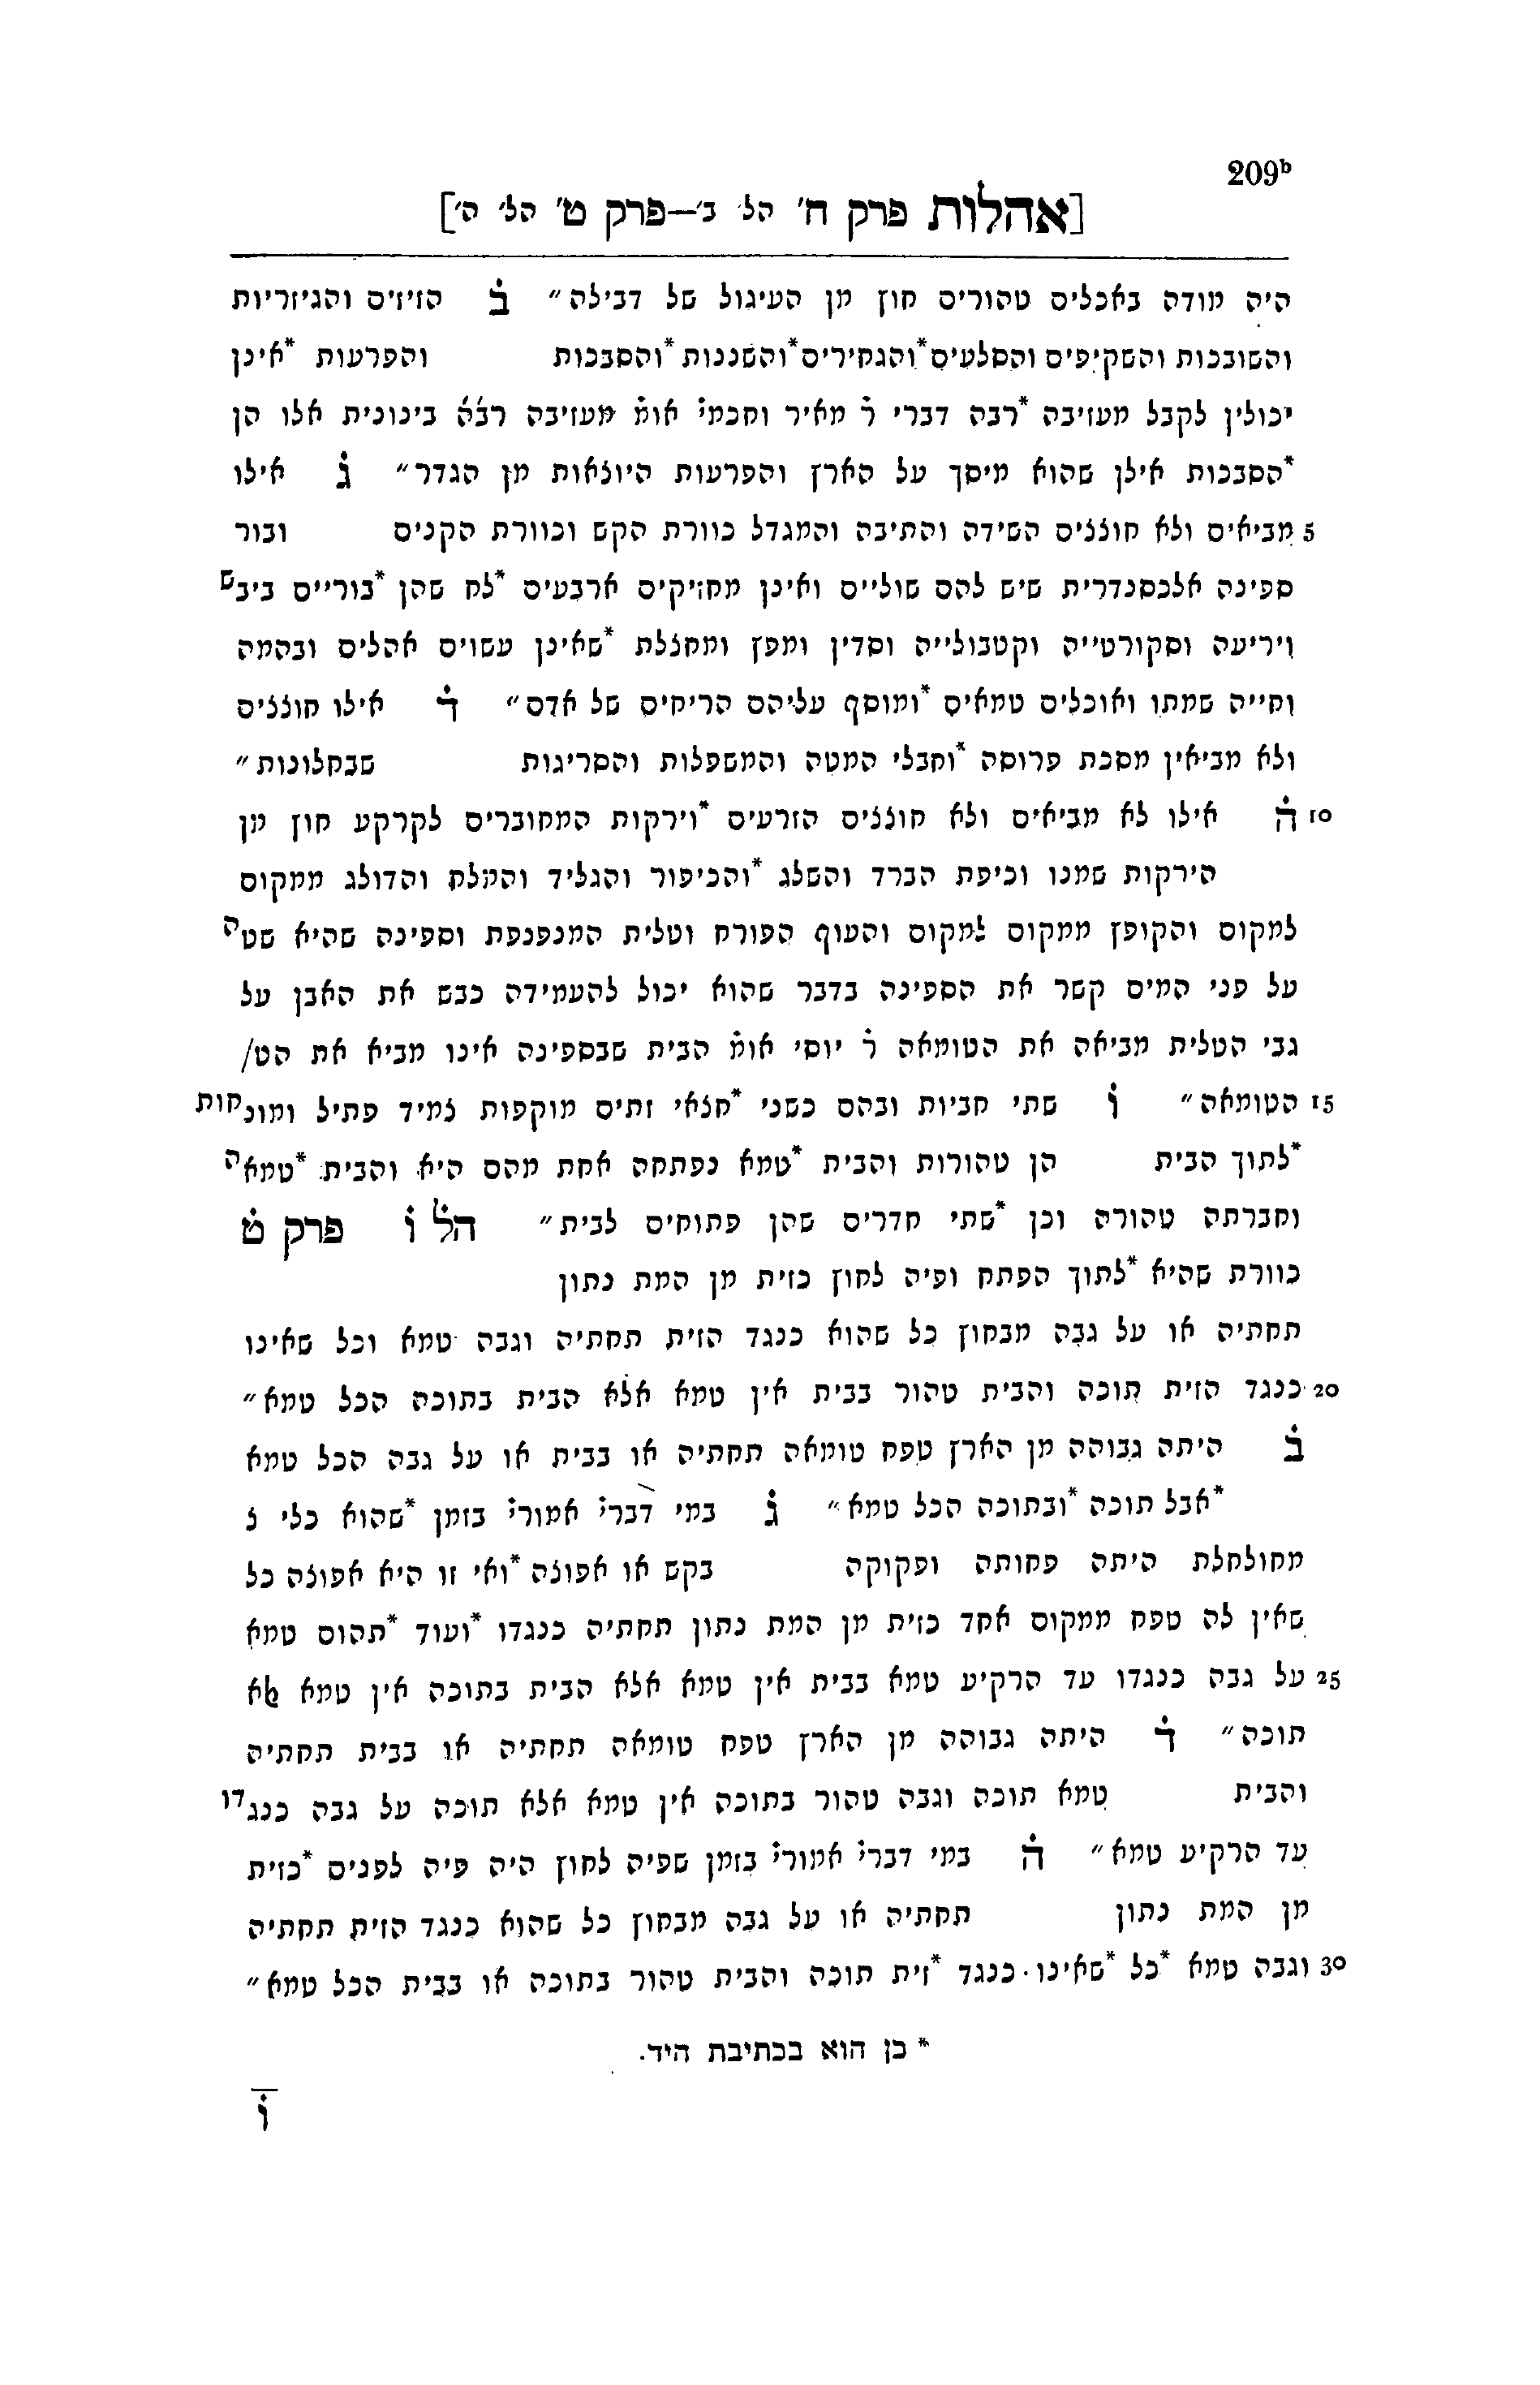 209b
[אהלות פרק ח' הל' ב'—פרק ט' הל' ה']
היה מודה באכלים טהורים חוץ מן העיגול של דבילה״ ב̇ הזיזים והגיזריות
והשובכות והשקיפים והסלעים*והגחירים*והשננות *והסבכות והפרעות *אינן
יכולין לקבל מעזיבה *רבה דברי ר̇ מאיר וחכמי̇ אומ̇ מעזיבה רבה̇ בינונית אלו הן
*הסבכות אילן שהוא מיסך על הארץ והפרעות היוצאות מן הגדר״ ג̇ אילו
5 מביאים ולא חוצצים השידה והתיבה והמגדל כוורת הקש וכוורת הקנים ובור
ספינה אלכסנדרית שיש להם שוליים ואינן מחזיקים ארבעים *לח שהן *בוריים ביבש
ויריעה וסקורטייה וקטבולייה וסדין ומפץ ומחצלת *שאינן עשוים אהלים ובהמה
וחייה שמתו ואוכלים טמאים *ומוסף עליהם הריחים של אדם״ ד̇ אילו חוצצים
ולא מביאין מסכת פרוסה *וחבלי המטה והמשפלות והסריגות שבחלונות״
10 ה̇ אילו לא מביאים ולא חוצצים הזרעים *וירקות המחוברים לקרקע חוץ מן
הירקות שמנו וכיפת הברד והשלג *והכיפור והגליד והמלח והדולג ממקום
למקום והקופץ ממקום למקום והעוף הפורח וטלית המנפנפת וספינה שהיא שטה
על פני המים קשר את הספינה בדבר שהוא יכול להעמידה כבש את האבן על
גבי הטלית מביאה את הטומאה ר̇ יוסי אומ̇ הבית שבספינה אינו מביא את הט/
15 הטומאה״ ו̇ שתי חביות ובהם כשני *חצאי זתים מוקפות צמיד פתיל ומונחות
*לתוך הבית הן טהורות והבית *טמא נפתחה אחת מהם היא והבית *טמאה
וחברתה טהורה וכן *שתי חדרים שהן פתוחים לבית״ הל̇ ו̇ פרק ט̇
כוורת שהיא *לתוך הפתח ופיה לחוץ כזית מן המת נתון
תחתיה או על גבה מבחוץ כל שהוא כנגד הזית תחתיה וגבה טמא וכל שאינו
20 כנגד הזית תוכה והבית טהור בבית אין טמא אלא הבית בתוכה הכל טמא״
ב̇ היתה גבוהה מן הארץ טפח טומאה תחתיה או בבית או על גבה הכל טמא
*אבל תוכה *ובתוכה הכל טמא״ ג̇ במי דברי̇ אמורי̇ בזמן *שהוא כלי צ
מחולחלת היתה פחותה ופקוקה בקש או אפוצה *ואי זו היא אפוצה כל
שאין לה טפח ממקום אחד כזית מן המת נתון תחתיה כנגדו *ועוד *תהום טמא
25 על גבה כנגדו עד הרקיע טמא בבית אין טמא אלא הבית בתוכה אין טמא לא
תוכה״ ד̇ היתה גבוהה מן הארץ טפח טומאה תחתיה או בבית תחתיה
והבית טמא תוכה וגבה טהור בתוכה אין טמא אלא תוכה על גבה כנגדו
עד הרקיע טמא״ ה̇ במי דברי̇ אמורי̇ בזמן שפיה לחוץ היה פיה לפנים *כזית
מן המת נתון תחתיה או על גבה מבחוץ כל שהוא כנגד הזית תחתיה
30 וגבה טמא *כל *שאינו כנגד *זית תוכה והבית טהור בתוכה או בבית הכל טמא״
* כן הוא בכתיבת היד.
ו̇